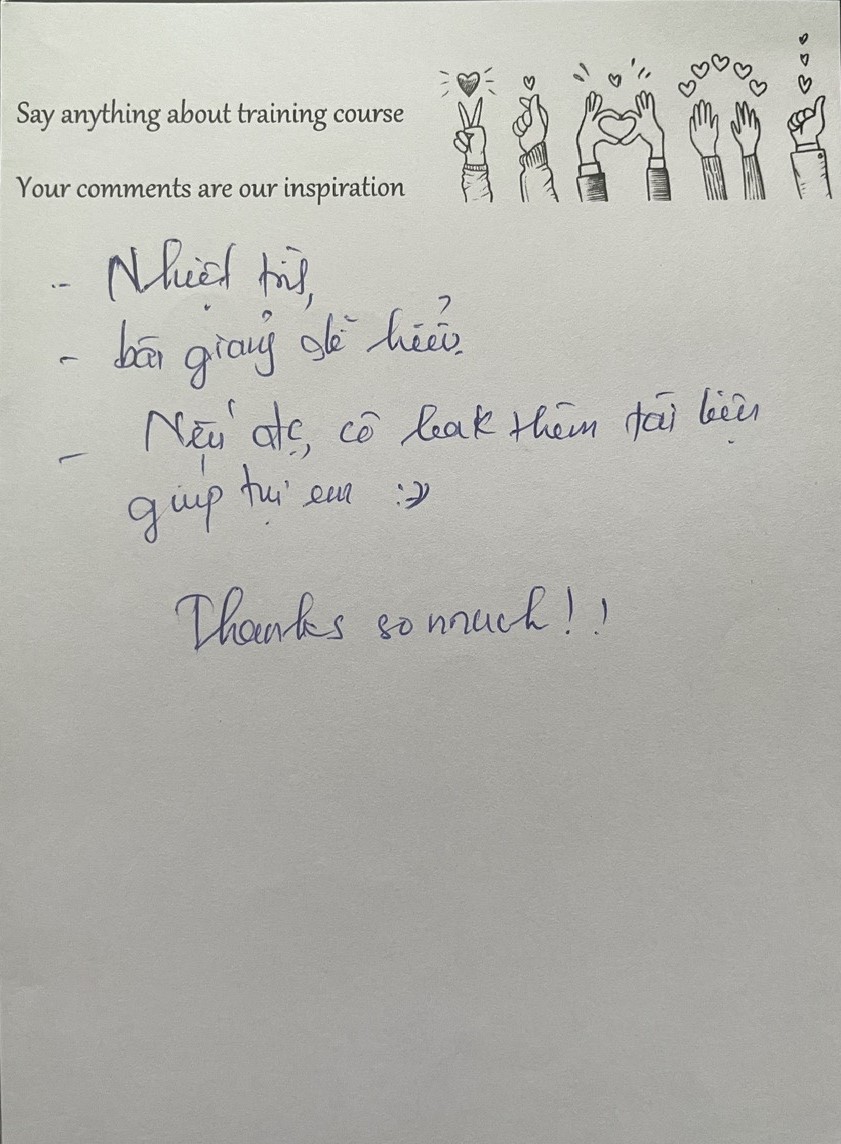 Say anything about training course
Your comments are our inspiration
- Nhiệt tình,
- bài giảng dễ hiểu.
- Nếu đc, cô leak thêm tài liệu
giúp tụi em :>>
Thanks so much!!